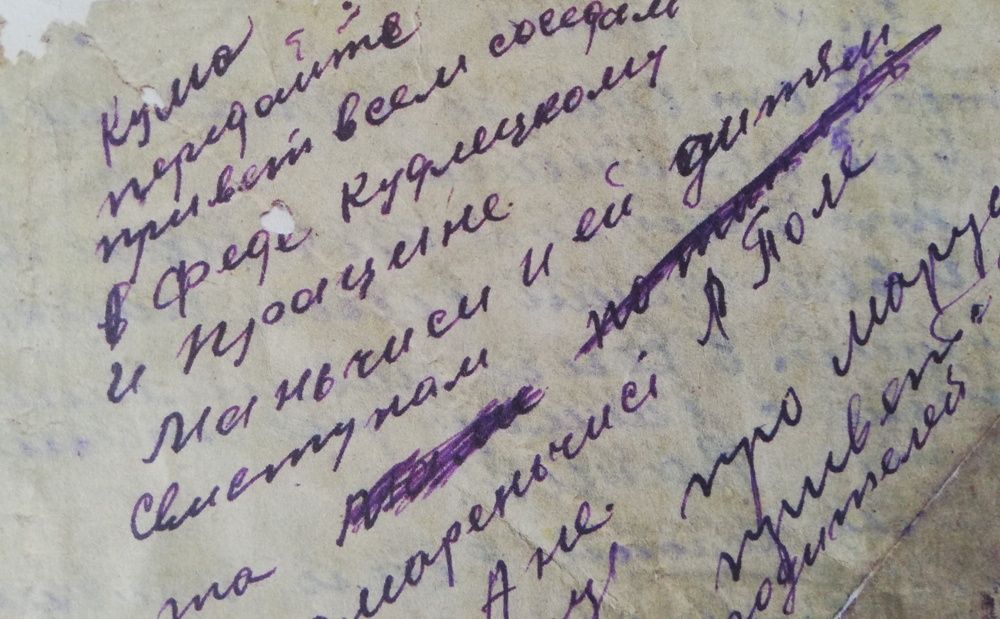 Кума
передайте
привет всем соседам
в Феде Куфлецкому
и Працине
Маньчиси и ей дитям
Свистунам
та маренычисі Л Поле
Ане про мару
привет
родителей